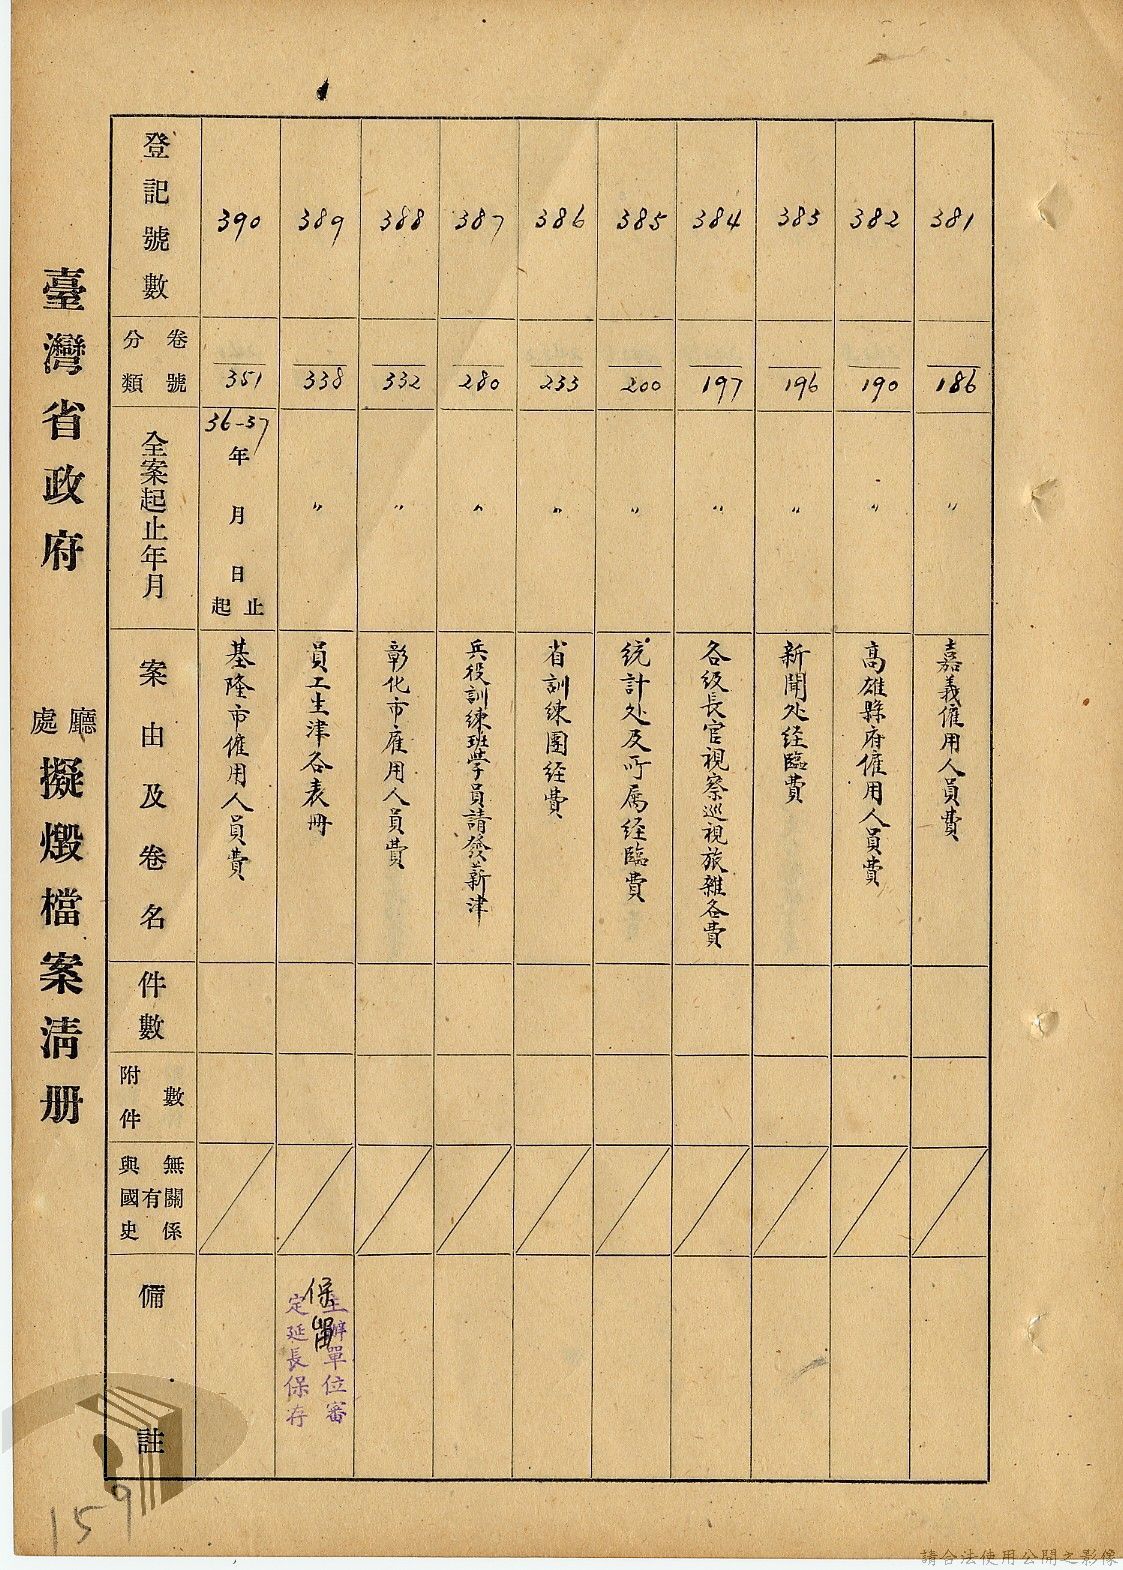 臺灣省政府 廳處 擬燬檔案清册
登記號數
390
389
388
387
386
385
384
383
382
381
卷號
分類
351
338
332
280
233
200
197
196
190
186
全案起止年月
36-37
年 月 日
起 止
〃
〃
〃
〃
〃
〃
〃
〃
〃
案由及卷名
基隆市僱用人員費
員工生津各表冊
彰化市雇用人員費
兵役訓練班學員請發薪津
省訓練團經費
統計处及所屬經臨費
各級長官視察巡視旅雜各費
新聞处經臨費
高雄縣府僱用人員費
嘉義僱用人員費
件數
附件數
與國史有無關係
備註
保留
主辦單位審
定延長保存
159
請合法使用公開之影像